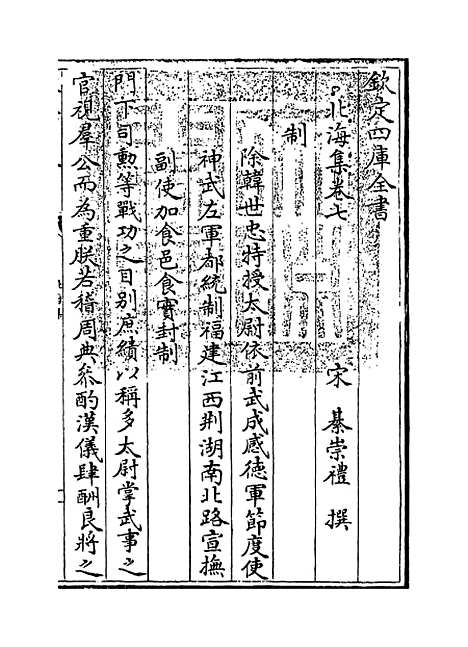 欽定四庫全書
北海集卷七
宋 綦崇禮 撰
制
除韓世忠特授太尉依前武成感德軍節度使
神武左軍都統制福建江西荆湖南北路宣撫
副使加食邑食實封制
門下司勲等戰功之目別庶績以稱多太尉掌武事之
官視羣公而為重朕若稽周典叅酌漢儀肆酬良將之